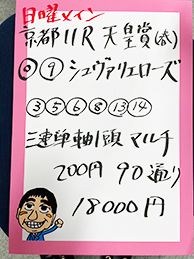 日曜メイン
京都11R 天皇賞(春)
◎⑨ シュヴァリエローズ
③⑤⑥⑧⑬⑭
三連単軸1頭 マルチ
200円 90通り
18000円